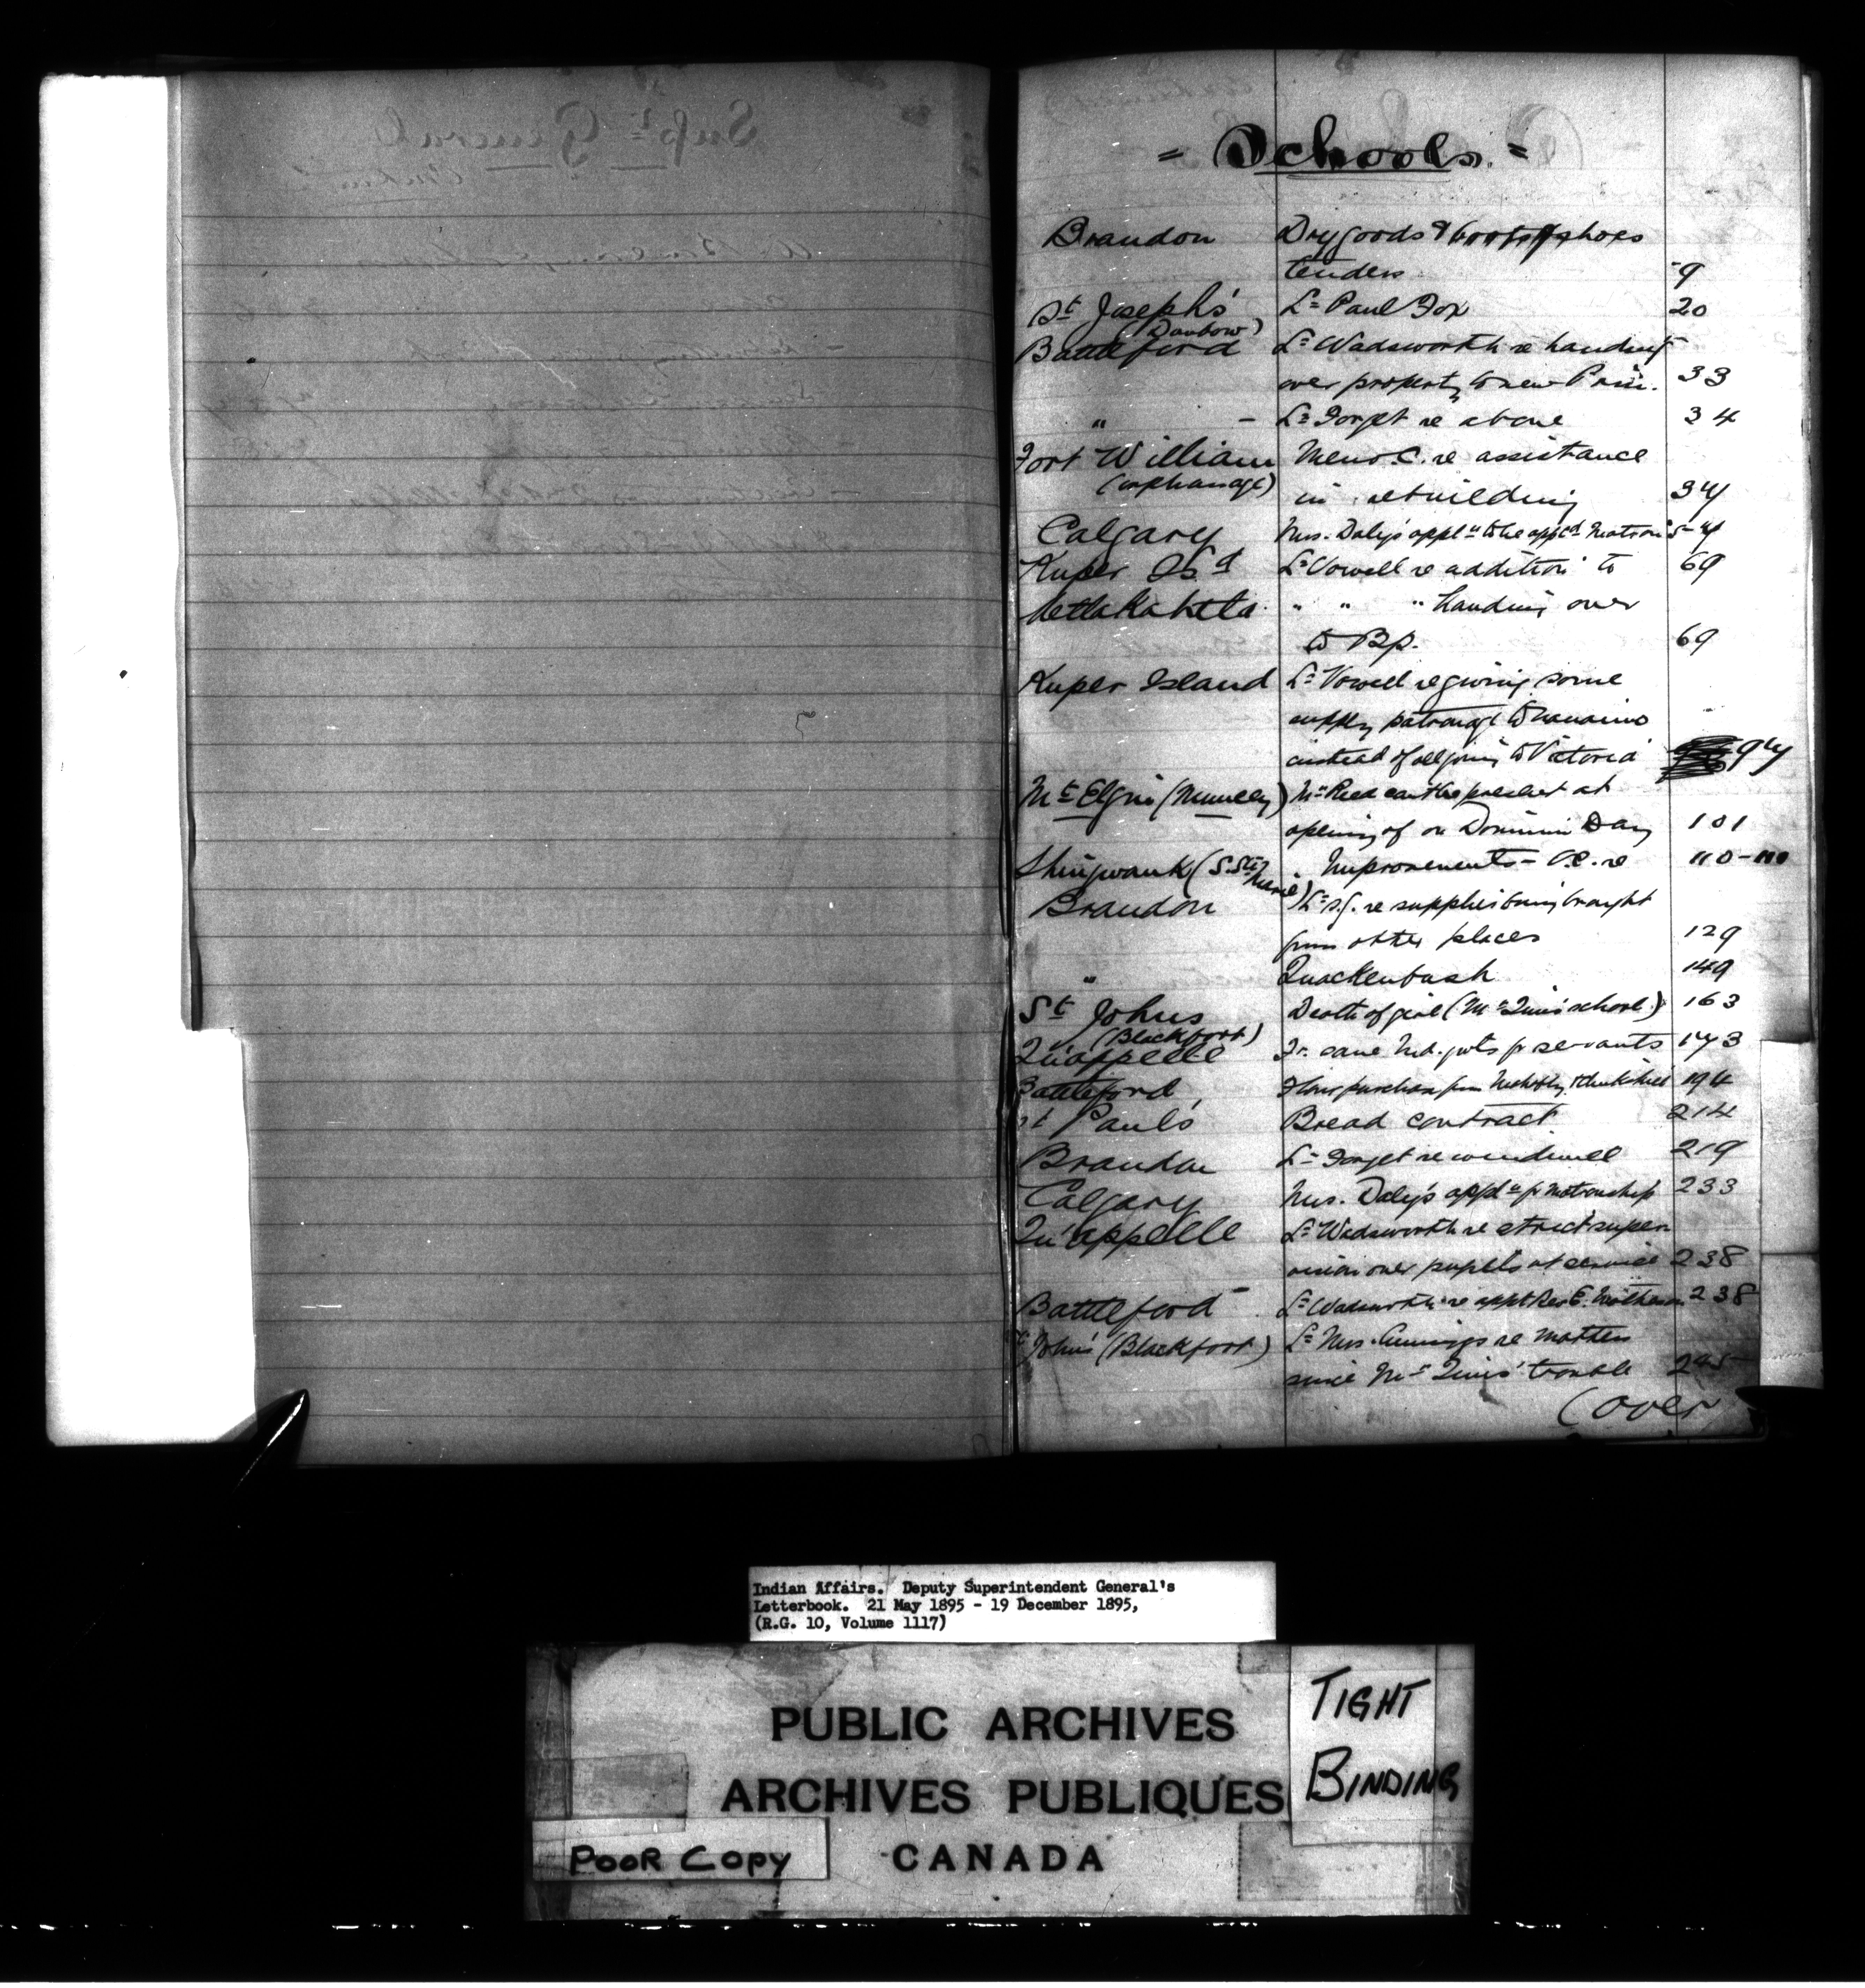 = Schools. =
Brandon Drygoods & boots & shoes
tenders 9
St Joseph's L= Paul Fox 20
(Dunbow)
Battleford L= Wadsworth re handing
over property to new Prin. 33
" - L= Forget re above 34
Fort William Memo. C. re assistance
(orphanage) in rebuilding 37
Calgary Mrs. Daly's appln to be appd Matron 57
Kuper Isd L= Vowell re addition to 69
Metlakahtla " " " handing over
to Bp. 69
Kuper Island L= Vowell re giving some
supply patronage to Nanaimo
instead of all going to Victoria 97
Mt Elgin (Muncey) Mr Reed can't be present at
opening of on Dominion Day 101
Shingwauk (S. Ste Marie) Improvements - O.C. re 110-
Brandon L= S.G. re supplies being brought
from other places 129
" Quackenbush 149
St Johns Death of girl (Mr Quins' school) 163
(Blackfoot)
Qu'appelle 173
Battleford, Flour purchase from 194
St Paul's Bread contract 214
Brandon L= Forget re windmill 219
Calgary Mrs. Daly's appln for matronship 233
Qu'appelle L= Wadsworth re strict super
vision over pupils at service 238
Battleford - L= Wadsworth re appt Rev E. Matheson 238
St John's (Blackfoot) L= Mrs. Cummings re matters
since Mr Quins' trouble 245
(over
Supt General
Indian Affairs. Deputy Superintendent General's
Letterbook. 21 May 1895 - 19 December 1895,
(R.G. 10, Volume 1117)
PUBLIC ARCHIVES
ARCHIVES PUBLIQUES
CANADA
TIGHT
BINDING
POOR COPY